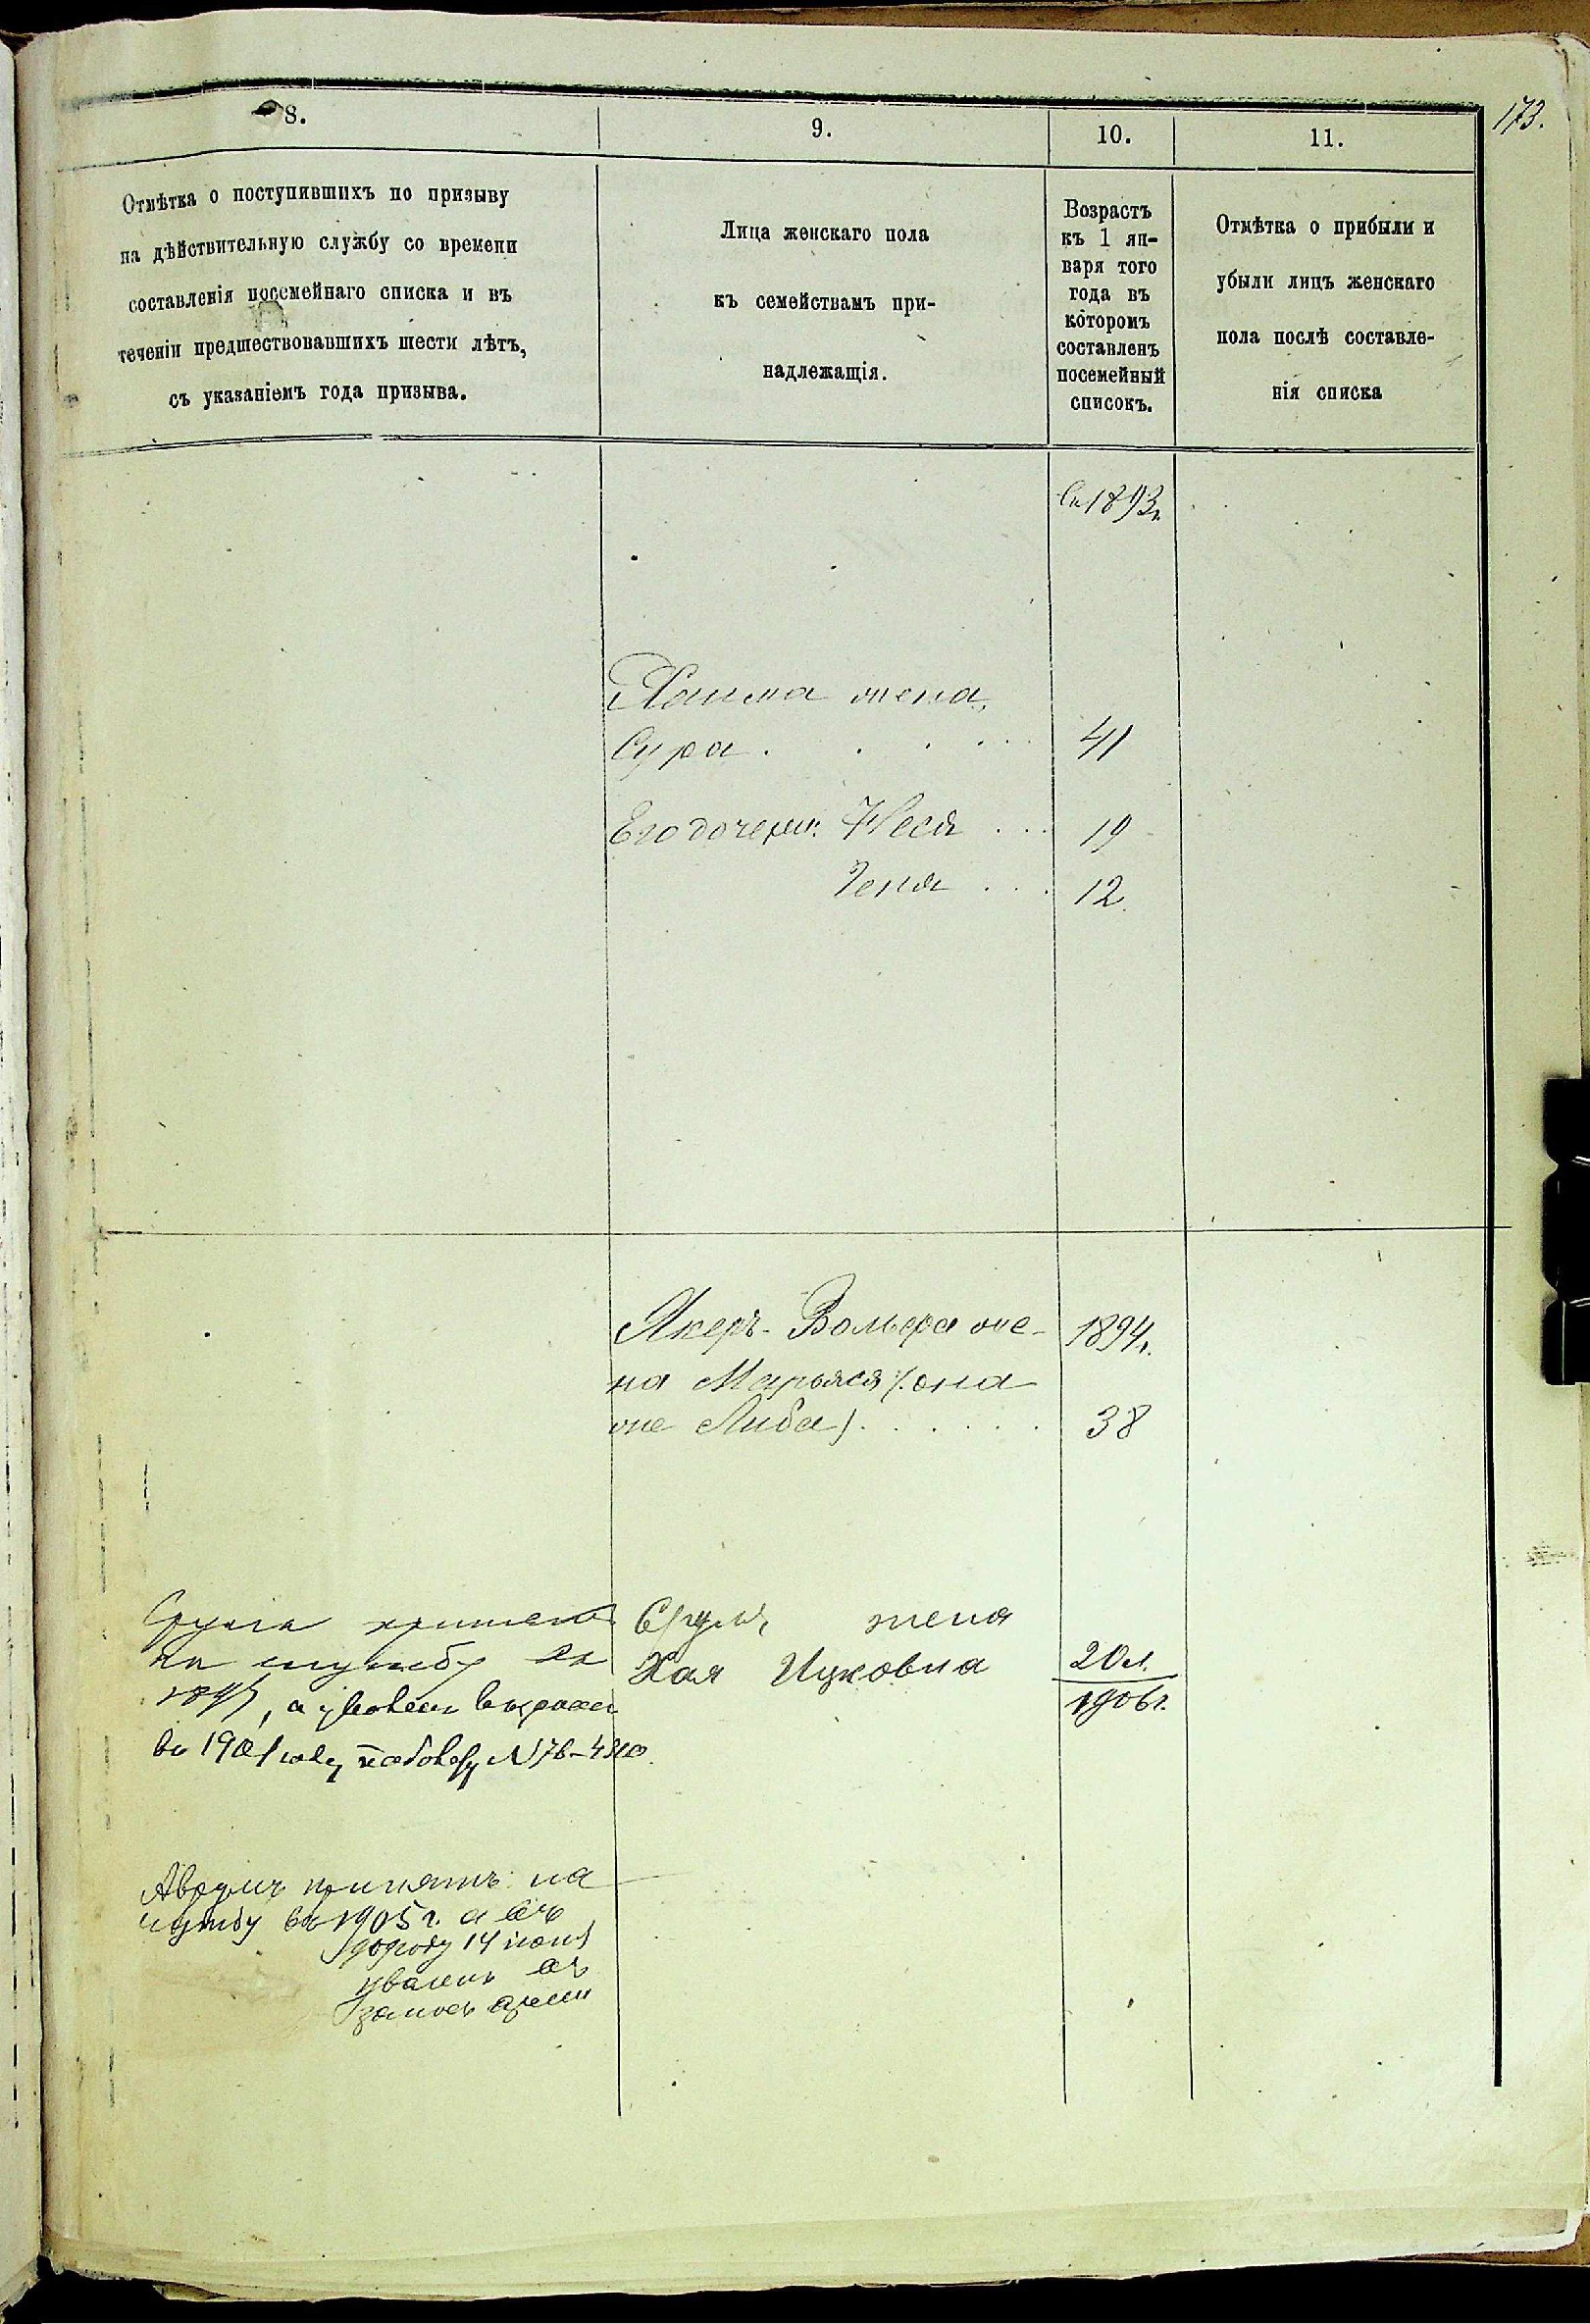 173.
8.
9.
10.
11.
Отмѣтка о поступившихъ по призыву
на дѣйствительную службу со времени
составленія посемейнаго списка и въ
теченіи предшествовавшихъ шести лѣтъ,
съ указаніемъ года призыва.
Лица женскаго пола
къ семействамъ при-
надлежащія.
Возрастъ
къ 1 ян-
варя того
года въ
которомъ
составленъ
посемейный
списокъ.
Отмѣтка о прибыли и
убыли лицъ женскаго
пола послѣ составле-
нія списка
1893г.
Хаима жена,
Сура . . . . . 41
Его дочери: Неся . . . 19
Геня . . . 12
Якеръ-Вольфа же- 1894г.
на Марьяся (она
же Либа) . . . . . . 38
Сруля принятъ
на службу въ
1897, а уволен в запас
въ 1901 году N 76-4310
Сруля жена
Хая Ицковна
20 л.
1906г.
Аврумъ принятъ на
службу въ 1905 г. а въ
году 14 іюня
уволенъ въ
запасъ арміи